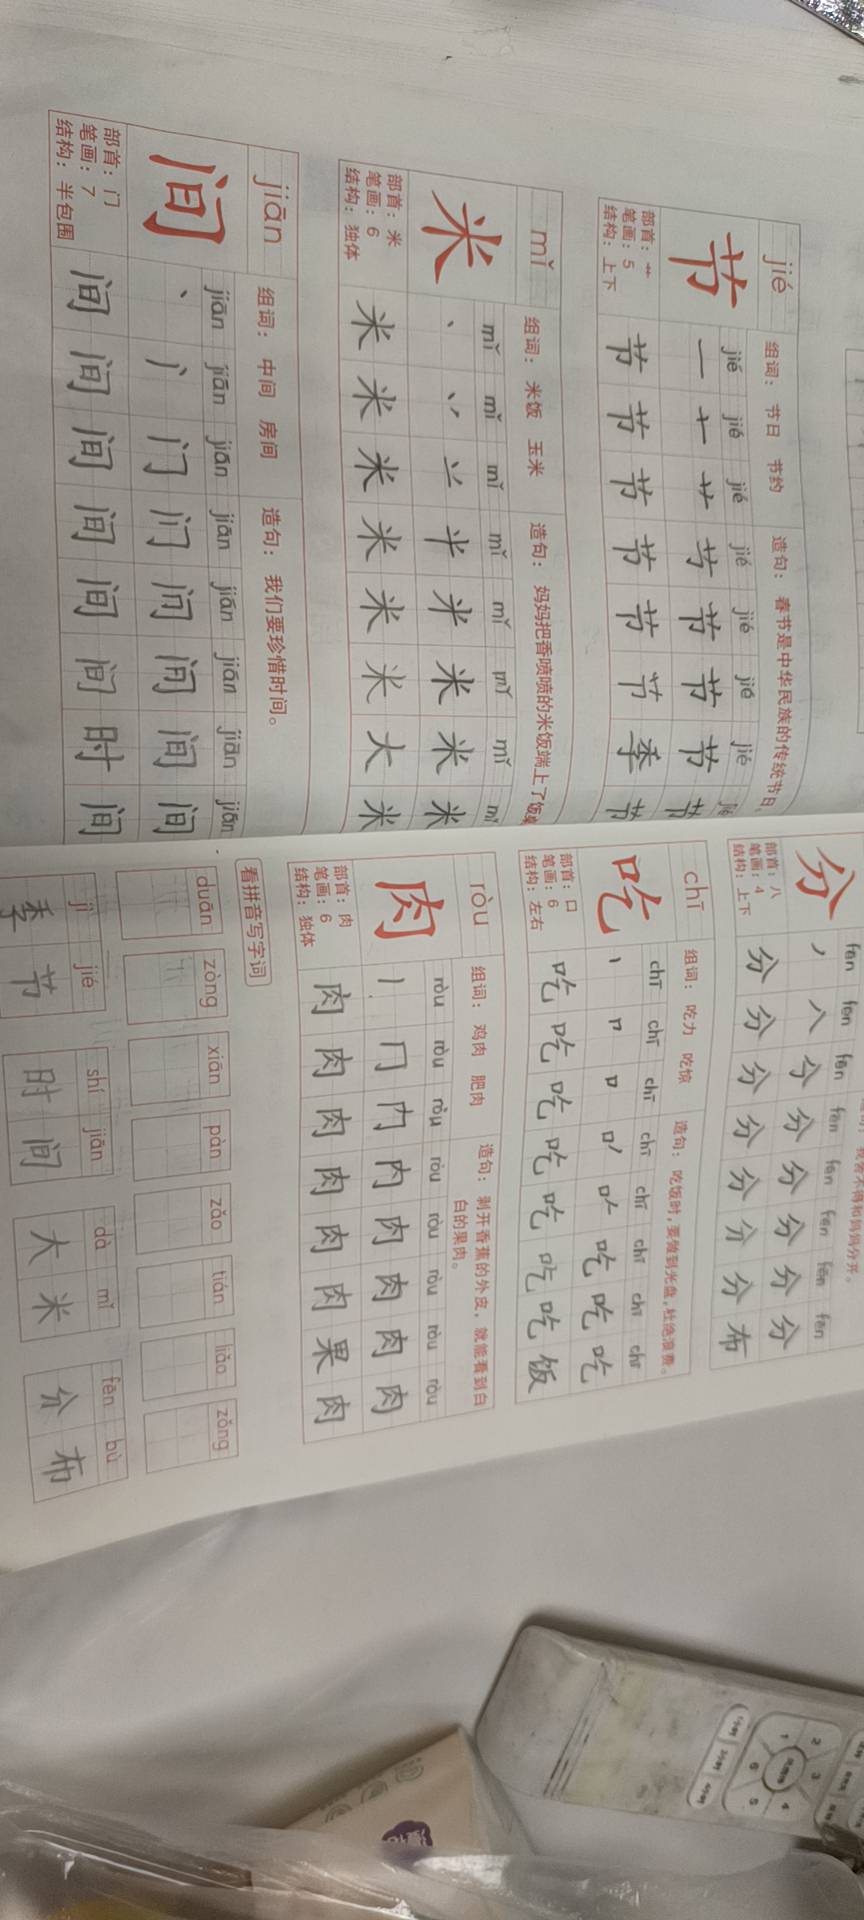 jié
组词： 节日 节约
造句： 春节是中华民族的传统节日
节
jié jié jié jié jié jié jié
一 十 艹 节 节 节 节
部首：艹
笔画：5
结构：上下
节 节 节 节 节 节 季 节
mǐ
组词： 米饭 玉米
造句： 妈妈把香喷喷的米饭端上了饭桌
米
mǐ mǐ mǐ mǐ mǐ mǐ mǐ mǐ
丶 丷 米 米 米 米
部首：米
笔画：6
结构：独体
米 米 米 米 米 米 大 米
jiān
组词： 中间 房间
造句： 我们要珍惜时间。
间
jiān jiān jiān jiān jiān jiān jiān jiān
丶 门 门 问 间 间 间
部首：门
笔画：7
结构：半包围
间 间 间 间 间 间 时 间
我舍不得和妈妈分开。
分
fēn fēn fēn fēn fēn fēn fēn fēn
丿 八 分 分 分 分 分 分
部首：八
笔画：4
结构：上下
分 分 分 分 分 分 分 布
chī
组词： 吃力 吃惊
造句： 吃饭时，要做到光盘，杜绝浪费。
吃
chī chī chī chī chī chī chī chī
丨 口 吃 吃 吃
部首：口
笔画：6
结构：左右
吃 吃 吃 吃 吃 吃 吃 饭
ròu
组词： 鸡肉 肥肉
造句： 剥开香蕉的外皮，就能看到白
白的果肉。
肉
ròu ròu ròu ròu ròu ròu ròu ròu
丨 冂 内 内 肉 肉 肉 肉
部首：肉
笔画：6
结构：独体
肉 肉 肉 肉 肉 肉 果 肉
看拼音写字词
duān zòng xiān pàn zǎo tián liǎo zǒng
jì jié shí jiān dà mǐ fēn bù
季 节 时 间 大 米 分 布